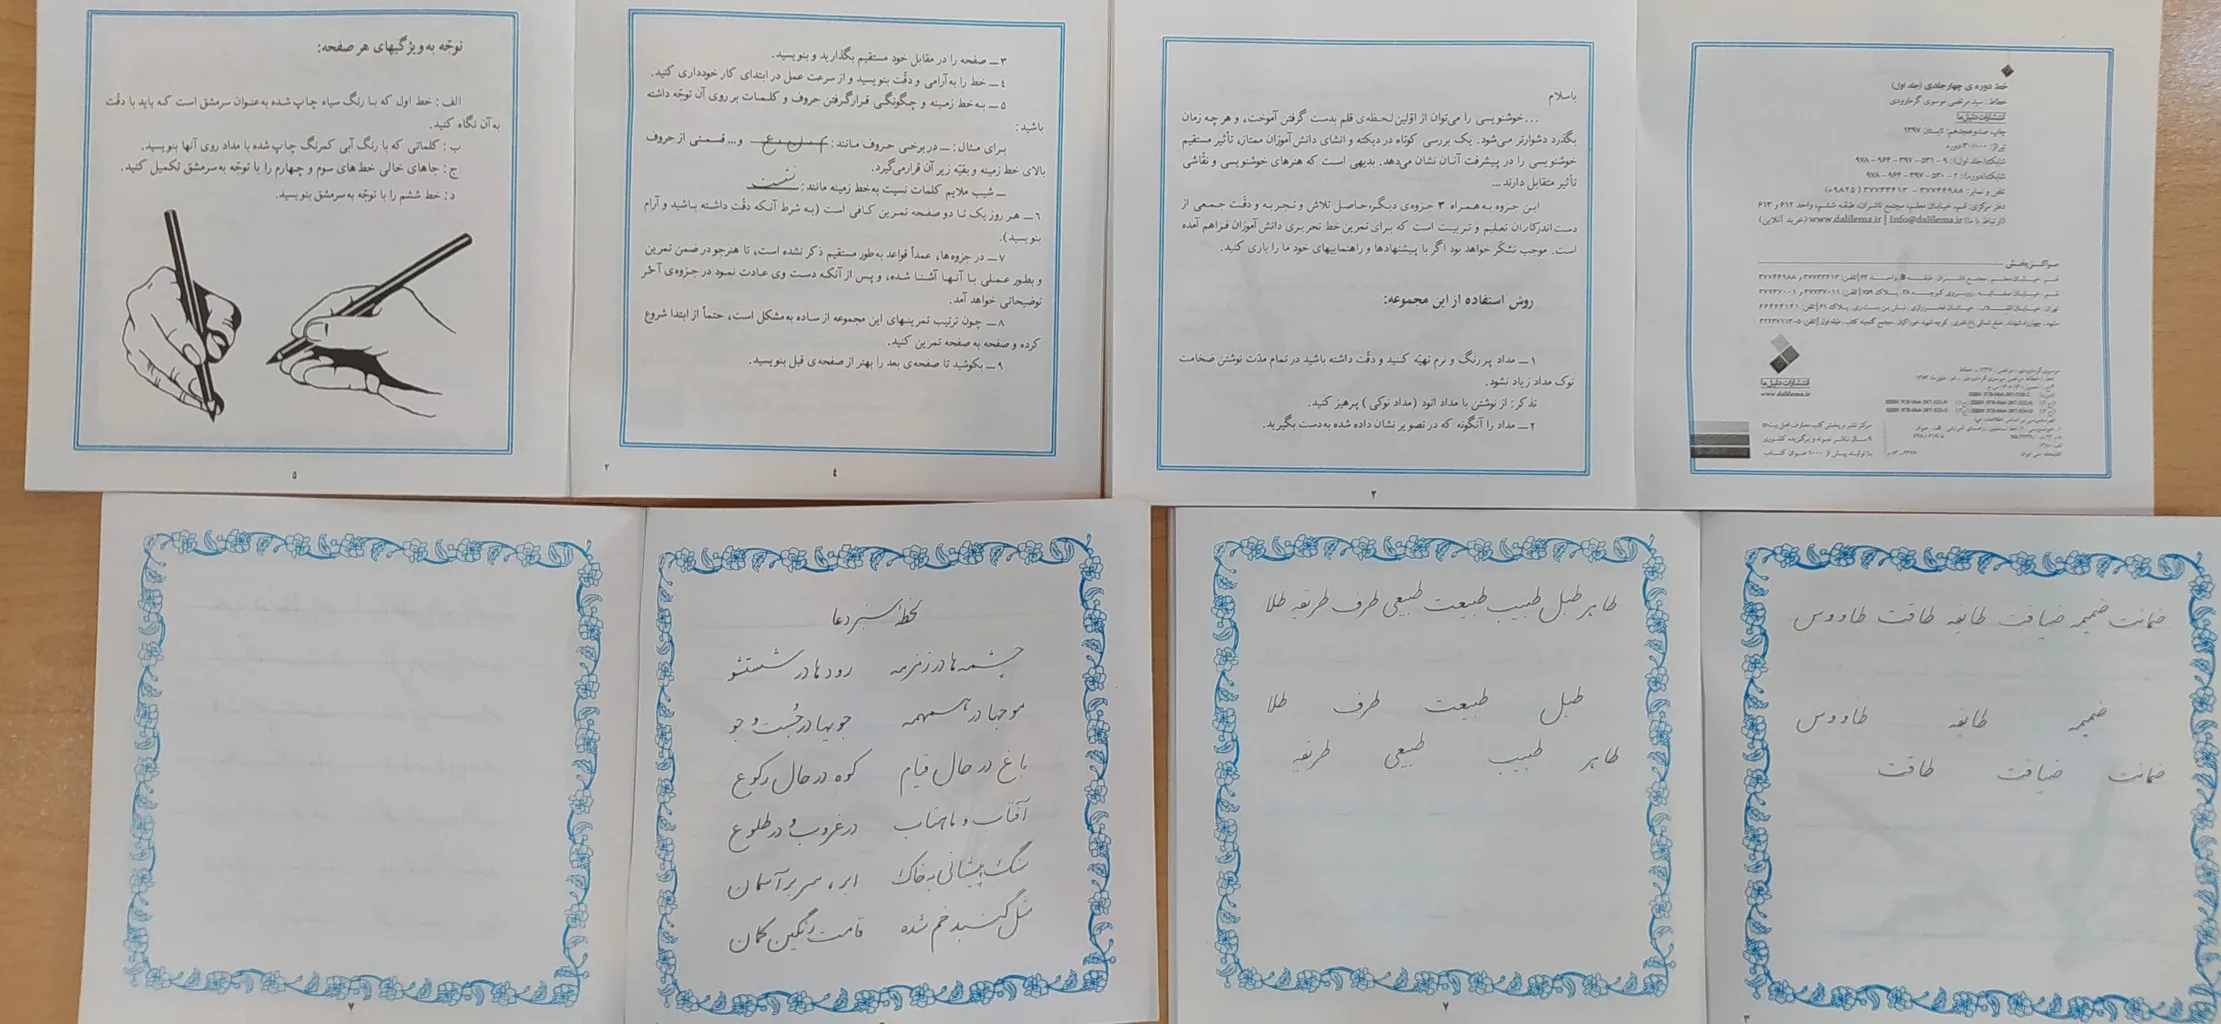 خط دوره ی چهارجلدی (جلد اول)
خطاط: سید مرتضی موسوی گرمارودی
انتشارات دلیل ما
چاپ: صد و هجدهم: تابستان ۱۳۹۷
تیراژ: ۳۰/۰۰۰ دوره
شابک(جلد اول): ۹ - ۵۳۱ - ۳۹۷ - ۹۶۴ - ۹۷۸
شابک(دوره): ۲ - ۵۳۰ - ۳۹۷ - ۹۶۴ - ۹۷۸
تلفن و نمابر: ۳۷۷۴۴۹۸۸ - ۳۷۷۳۳۴۱۳ (۹۸۲۵+)
دفتر مرکزی: قم، خیابان معلم، مجتمع ناشران، طبقه ششم، واحد ۶۱۲ و ۶۱۳
(ارتباط با ما) www.dalilema.ir | Info@dalilema.ir (خرید آنلاین)
مراکز پخش
انتشارات دلیل ما
www.dalilema.ir
مرکز نشر و پخش کتب معارف اهل بیت
۹ سال ناشر نمونه و برگزیده کشوری
با تولید بیش از ۱۰۰۰ عنوان کتاب
باسلام
...خوشنویسی را می‌توان از اوّلین لحظه‌ی قلم بدست گرفتن آموخت، و هر چه زمان
بگذرد دشوارتر می‌شود. یک بررسی کوتاه در دیکته و انشای دانش آموزان ممتاز، تأثیر مستقیم
خوشنویسی را در پیشرفت آنان نشان می‌دهد. بدیهی است که هنرهای خوشنویسی و نقّاشی
تأثیر متقابل دارند...
این جزوه به همراه ۳ جزوه‌ی دیگر، حاصل تلاش و تجربه و دقّت جمعی از
دست‌اندرکاران تعلیم و تربیت است که برای تمرین خط تحریری دانش آموزان فراهم آمده
است. موجب تشکّر خواهد بود اگر با پیشنهادها و راهنماییهای خود ما را یاری کنید.
روش استفاده از این مجموعه:
۱ــ مداد پر رنگ و نرم تهیّه کنید و دقّت داشته باشید در تمام مدّت نوشتن ضخامت
نوک مداد زیاد نشود.
تذکر: از نوشتن با مداد اتود (مداد نوکی) پرهیز کنید.
۲ــ مداد را آنگونه که در تصویر نشان داده شده به دست بگیرید.
۳
۳ــ صفحه را در مقابل خود مستقیم بگذارید و بنویسید.
٤ــ خط را به آرامی و دقّت بنویسید و از سرعت عمل در ابتدای کار خودداری کنید.
۵ــ به خط زمینه و چگونگی قرار گرفتن حروف و کلمات بر روی آن توجّه داشته
باشید:
برای مثال: ــ در برخی حروف مانند: و... قسمتی از حروف
بالای خط زمینه و بقیّه زیر آن قرار می‌گیرد.
ــ شیب ملایم کلمات نسبت به خط زمینه مانند:
٦ــ هر روز یک تا دو صفحه تمرین کافی است (به شرط آنکه دقّت داشته باشید و آرام
بنویسید).
۷ــ در جزوه‌ها، عمداً قواعد به‌طور مستقیم ذکر نشده است، تا هنرجو در ضمن تمرین
و بطور عملی با آنها آشنا شده، و پس از آنکه دست وی عادت نمود در جزوه‌ی آخر
توضیحاتی خواهد آمد.
۸ــ چون ترتیب تمرینهای این مجموعه از ساده به مشکل است، حتماً از ابتدا شروع
کرده و صفحه به صفحه تمرین کنید.
۹ــ بکوشید تا صفحه‌ی بعد را بهتر از صفحه‌ی قبل بنویسید.
٤
۲
توجّه به ویژگیهای هر صفحه:
الف: خط اول که با رنگ سیاه چاپ شده به‌عنوان سرمشق است که باید با دقّت
به آن نگاه کنید.
ب: کلماتی که با رنگ آبی کمرنگ چاپ شده با مداد روی آنها بنویسید.
ج: جاهای خالی خط‌های سوم و چهارم را با توجّه به سرمشق تکمیل کنید.
د: خط ششم را با توجّه به سرمشق بنویسید.
۵
ضمانت ضمیمه ضیافت طایفه طاقت طاووس
ضمیمه طایفه طاووس
ضمانت ضیافت طاقت
۳
طاهر طبل طبیب طبیعت طبیعی طرف طریقه طلا
طبل طبیعت طرف طلا
طاهر طبیب طبیعی طریقه
۷
لحظه سبز دعا
چشمه‌ها در زمزمه رودها در شستشو
موجها در همهمه جویها در جُست و جو
باغ در حال قیام کوه در حال رکوع
آفتاب و ماهتاب در غروب و در طلوع
سنگ، پیشانی به خاک ابر، سر بر آسمان
مثل گنبد خم شده قامت رنگین کمان
۷